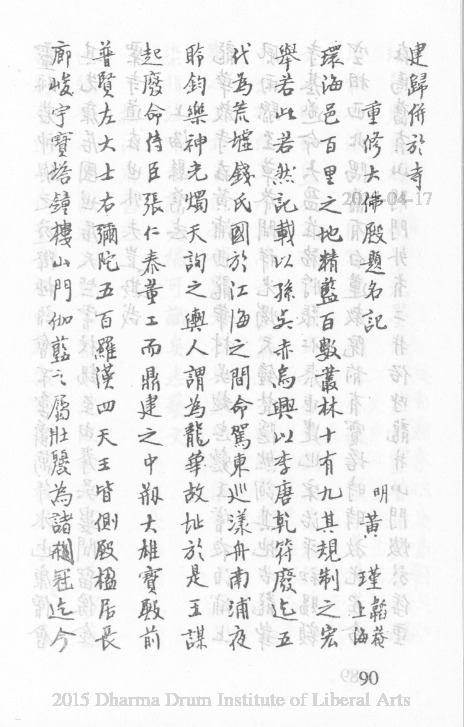 建歸併於寺
重修大佛殿題名記
明 黃 瑾 上海 韜菴
環海邑百里之地精藍百數叢林十有九其規制之宏
舉若此若然記載以孫吳赤烏興以李唐乾符廢迄五
代為荒墟錢氏國於江海之間命駕東巡漾舟南浦夜
聆鈞樂神光燭天詢之輿人謂為龍華故址於是王謀
起廢命侍臣張仁泰董工而鼎建之中剏大雄寶殿前
普賢左大士右彌陀五百羅漢四天王皆側殿楹居長
廊峻宇寶塔鐘樓山門伽藍之屬壯麗為諸剎冠迄今
2021-04-17
90
2015 Dharma Drum Institute of Liberal Arts